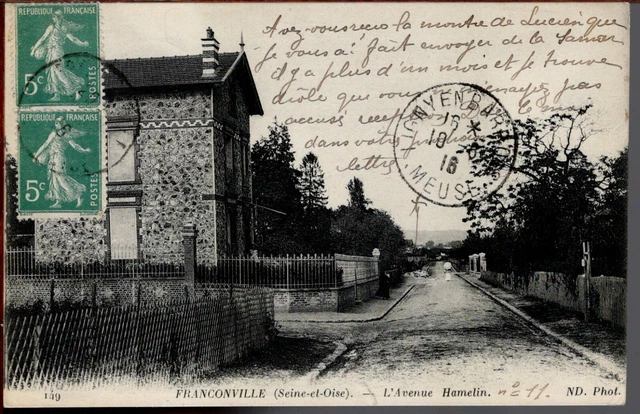 RÉPUBLIQUE FRANÇAISE
5c POSTES
RÉPUBLIQUE FRANÇAISE
5c POSTES
Avez-vous recu la montre de Lucien que
je vous ai fait envoyer de la Samar
il y a plus d'un mois et je trouve
drôle que vous pas
accusé
dans votre
lettre
LIGNY EN BARROIS
16 *
10 -
16
MEUSE
149 FRANCONVILLE (Seine-et-Oise). L'Avenue Hamelin. n° 11. ND. Phot.